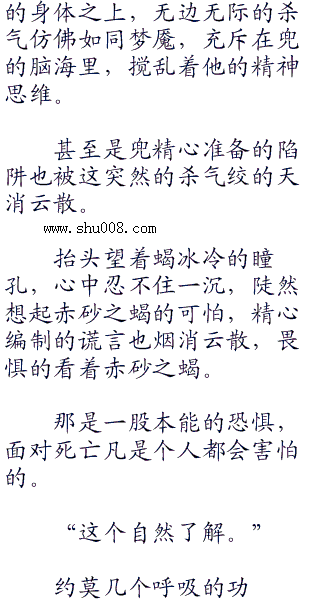 的身体之上，无边无际的杀
气仿佛如同梦魇，充斥在兜
的脑海里，搅乱着他的精神
思维。
甚至是兜精心准备的陷
阱也被这突然的杀气绞的天
消云散。
www.shu008.com
抬头望着蝎冰冷的瞳
孔，心中忍不住一沉，陡然
想起赤砂之蝎的可怕，精心
编制的谎言也烟消云散，畏
惧的看着赤砂之蝎。
那是一股本能的恐惧，
面对死亡凡是个人都会害怕
的。
“这个自然了解。”
约莫几个呼吸的功